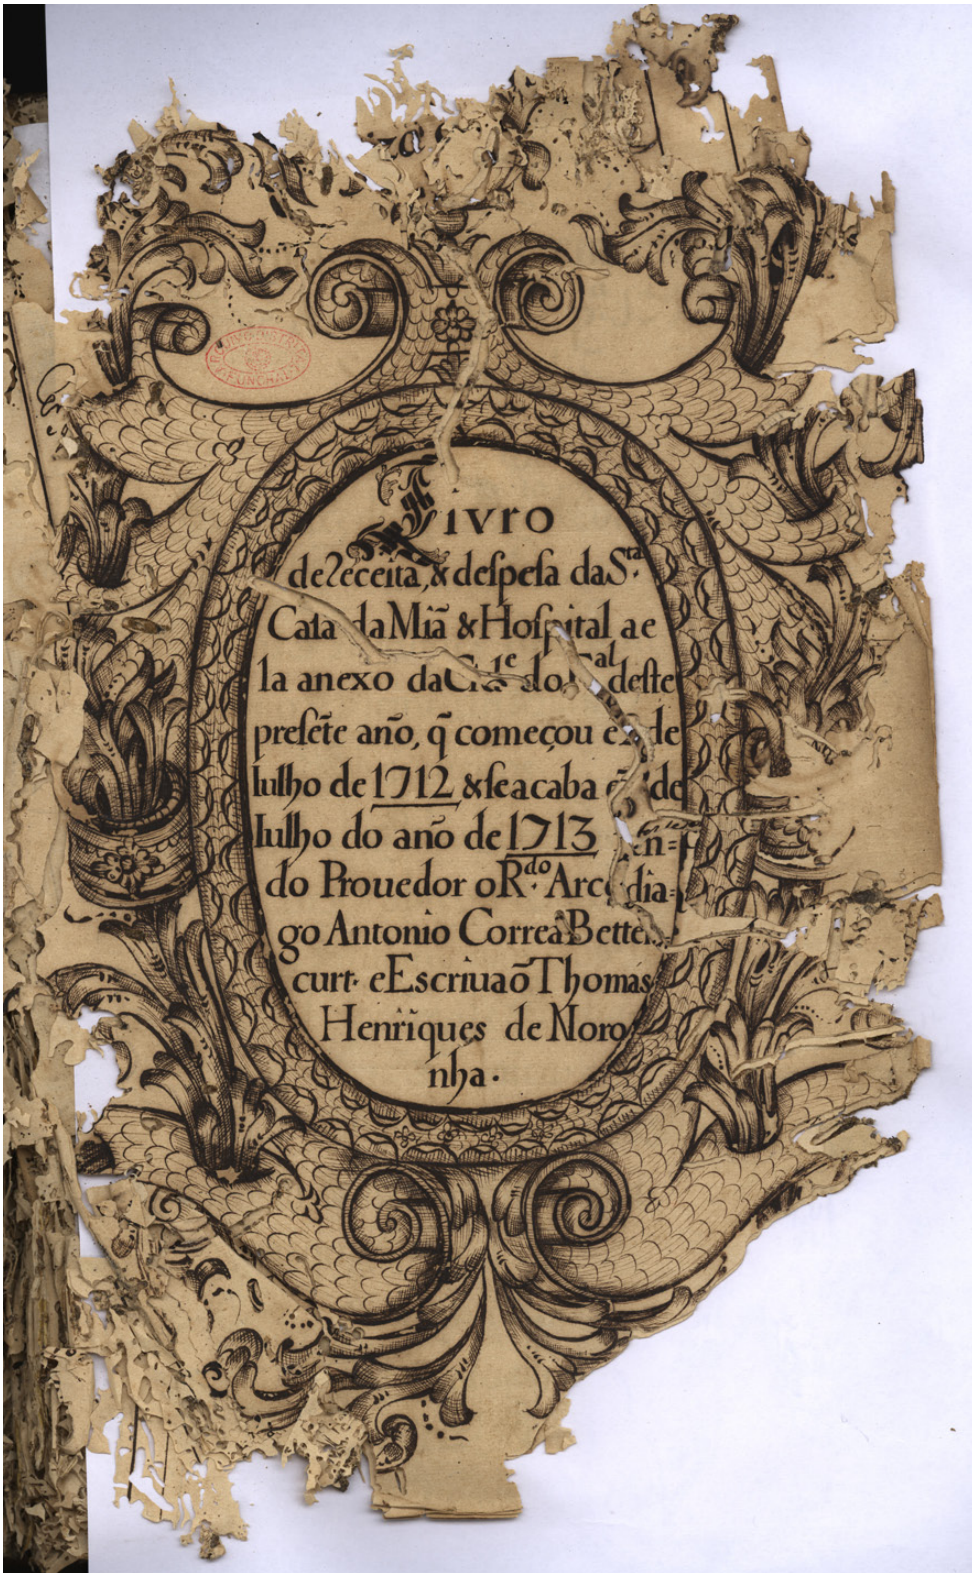 ARQUIVO DISTRITAL
FUNCHAL
Livro
de Receita, & deſpeſa da S.ta
Caſa da Miã & Hoſpital a e
la anexo da do deſte
preſẽte año, q̃ começou de
Iulho de 1712 & ſe acaba de
Iulho do año de 1713
do Prouedor o R.do Arcedia=
go Antonio Correa Betten
curt. e Eſcriuaõ Thomas
Henriques de Noro
nha.